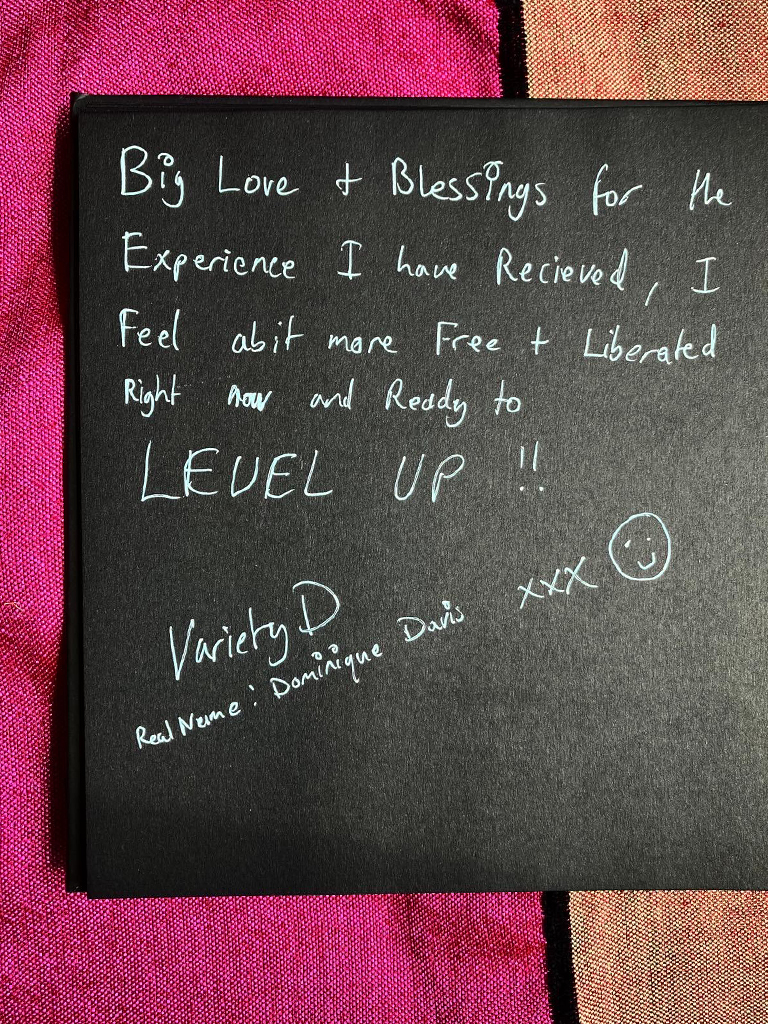 Big Love + Blessings for the
Experience I have Recieved, I
Feel abit more Free + Liberated
Right now and Ready to
LEVEL UP !!
xxx
Variety D
Real Name: Dominique Davis